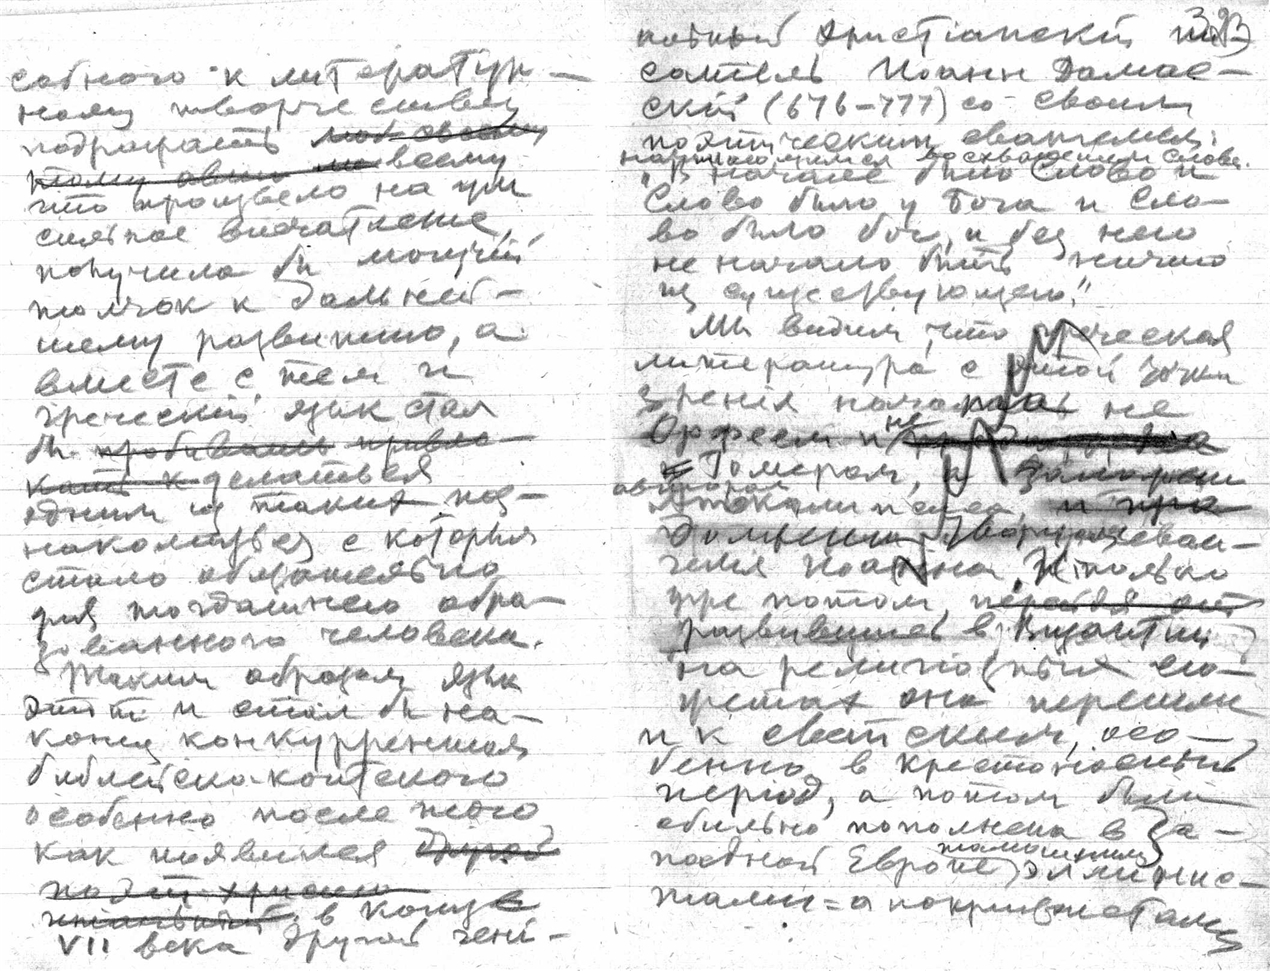 собного к литератур-
ному творчеству
подражать
всему
что произвело на них
сильное впечатление,
получила бы могучий
толчок к дальней-
шему развитию, а
вместе с тем и
греческий язык стал
бы пробивать привле-
кать к делаться
одним из таких поз-
накомиться с которым
стало обязательно
для тогдашнего обра-
зованного человека.
Таким образом язык
этот и стал бы на-
конец конкуррентом
библейско-коптского
особенно после того
как появился другой
поэт христи-
в конце
VII века другой гени-
393
альный христіанскій пи-
сатель Иоанн Дамас-
скій (676–777) со своим
поэтическим евангелием,
восхвалением слова.
"В начале было Слово и
Слово было у Бога и Сло-
во было бог, и без него
не начало быть ничто
из существующего".
Мы видим, что греческая
литература с этой точки
зрения началась не
Орфеем и не
Гомером, а
автором
Апокалипсиса, и
Еван-
гелия Иоанна. И только
уже потом,
развившись в Византии
на религиозных сю-
жетах она перешла
и к светским, осо-
бенно в крестоносный
период, а потом была
обильно пополнена в За-
падной Европе тамошними эллинис-
тами = апокрифистами